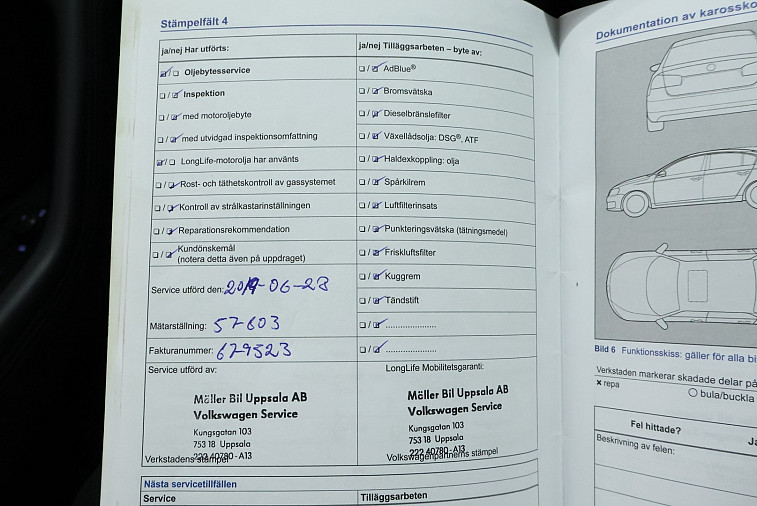 Stämpelfält 4
ja/nej Har utförts:
☑/☐ Oljebytesservice
☐/☑ Inspektion
☐/☑ med motoroljebyte
☐/☑ med utvidgad inspektionsomfattning
☑/☐ LongLife-motorolja har använts
☐/☑ Rost- och täthetskontroll av gassystemet
☐/☑ Kontroll av strålkastarinställningen
☐/☑ Reparationsrekommendation
☐/☑ Kundönskemål
(notera detta även på uppdraget)
Service utförd den: 2019-06-28
Mätarställning: 57603
Fakturanummer: 679523
Service utförd av:
Möller Bil Uppsala AB
Volkswagen Service
Kungsgatan 103
753 18 Uppsala
222 40780-A13
Verkstadens stämpel
ja/nej Tilläggsarbeten – byte av:
☐/☑ AdBlue®
☐/☑ Bromsvätska
☐/☑ Dieselbränslefilter
☐/☑ Växellådsolja: DSG®, ATF
☐/☑ Haldexkoppling: olja
☐/☑ Spårkilrem
☐/☑ Luftfilterinsats
☐/☑ Punkteringsvätska (tätningsmedel)
☐/☑ Friskluftsfilter
☐/☑ Kuggrem
☐/☑ Tändstift
☐/☑ ....................
☐/☑ ....................
LongLife Mobilitetsgaranti:
Möller Bil Uppsala AB
Volkswagen Service
Kungsgatan 103
753 18 Uppsala
222 40780-A13
Volkswagenpartnerns stämpel
Nästa servicetillfällen
Service
Tilläggsarbeten
Dokumentation av karossko
Bild 6 Funktionsskiss: gäller för alla bi
Verkstaden markerar skadade delar på
× repa
○ bula/buckla
Fel hittade?
Ja
Beskrivning av felen: